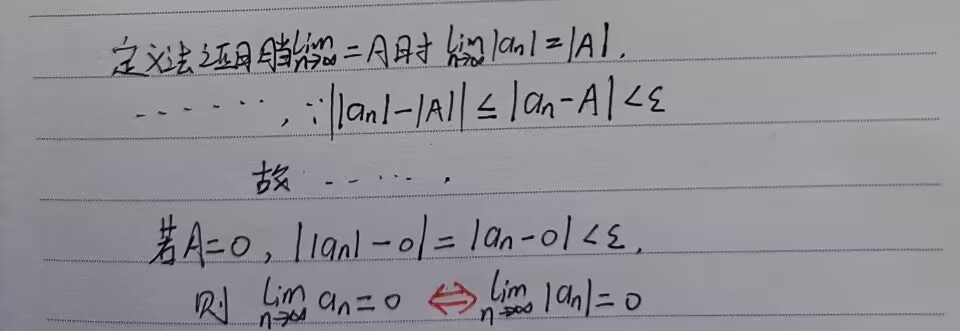 定义法证明当lim n→∞ = A时 lim n→∞ |an| = |A|.
......, ∵||an|-|A|| ≤ |an-A| < ε
故 ......
若A=0, ||an|-0| = |an-0| < ε,
则 lim n→∞ an = 0 ⇔ lim n→∞ |an| = 0